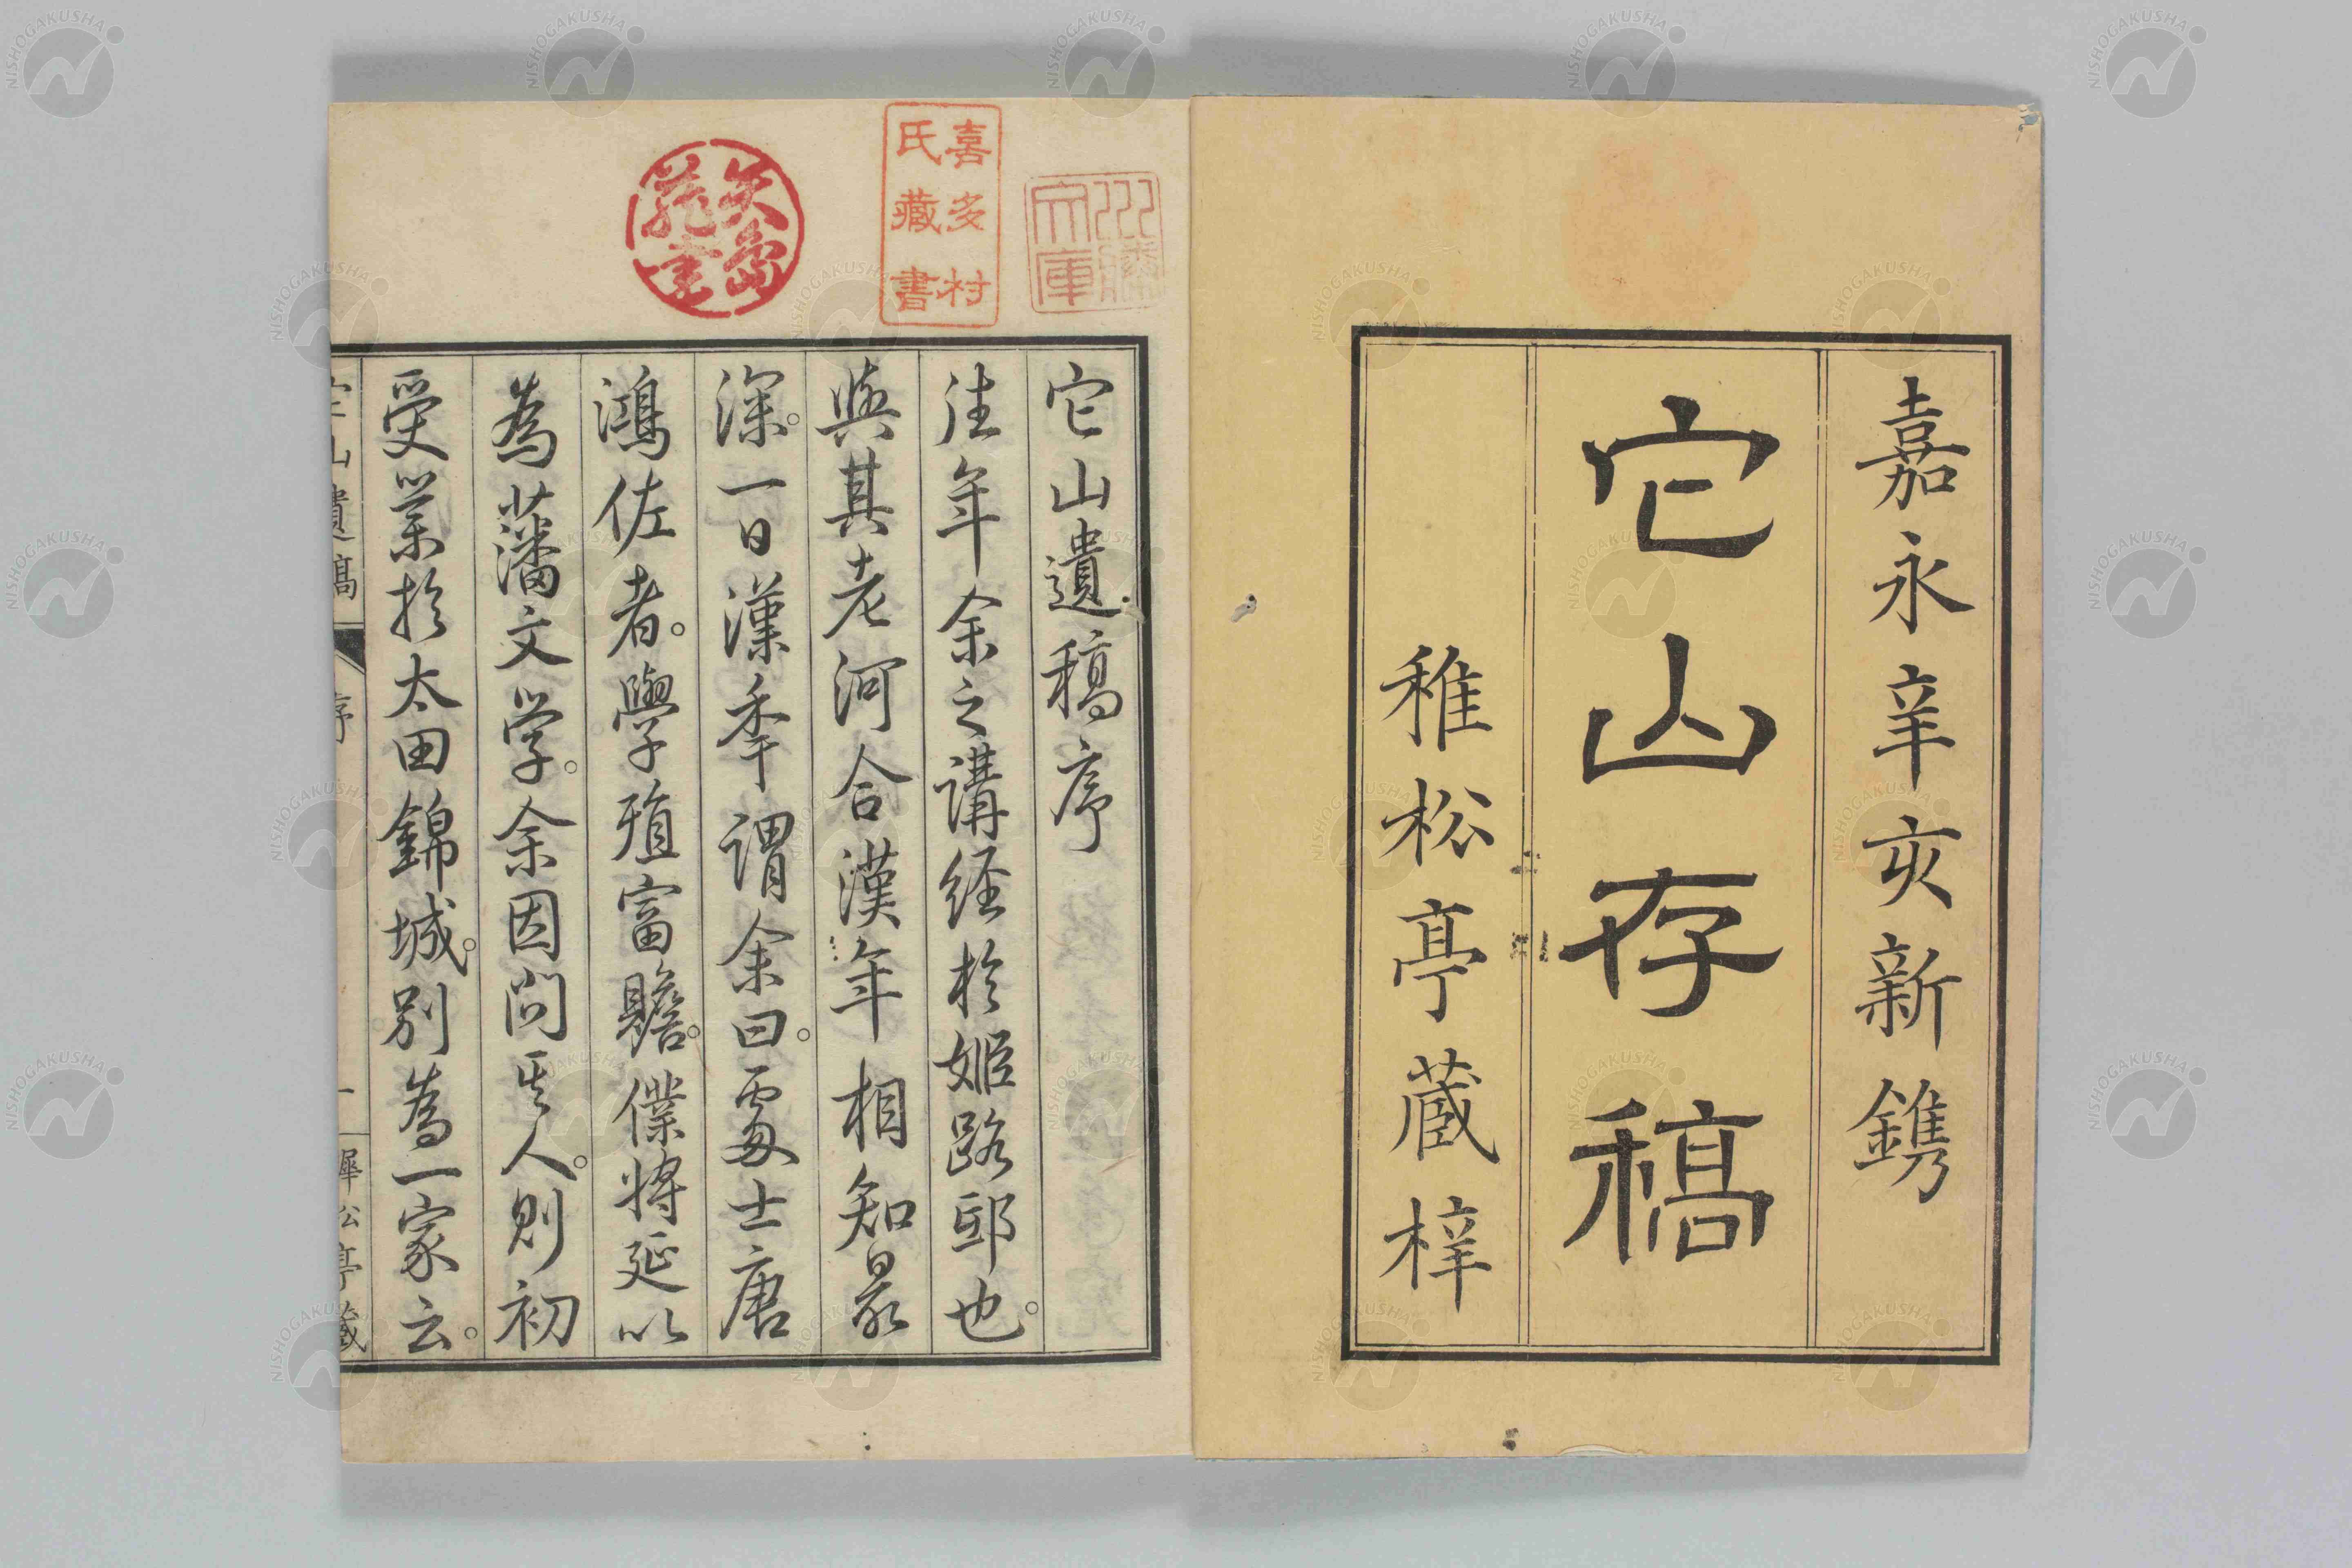 嘉永辛亥新鐫
它山存稿
稚松亭蔵梓
喜多村
氏藏書
文庫
它山遺稿序
往年余之講経於姫路邸也。
與其老河合漢年相知最
深。一日漢年謂余曰。處士唐
鴻佐者。學殖富贍。僕將延以
為藩文学。余因問其人。則初
受業於太田錦城。別為一家云。
它山遺稿
序
一
稚松亭藏
NISHOGAKUSHA